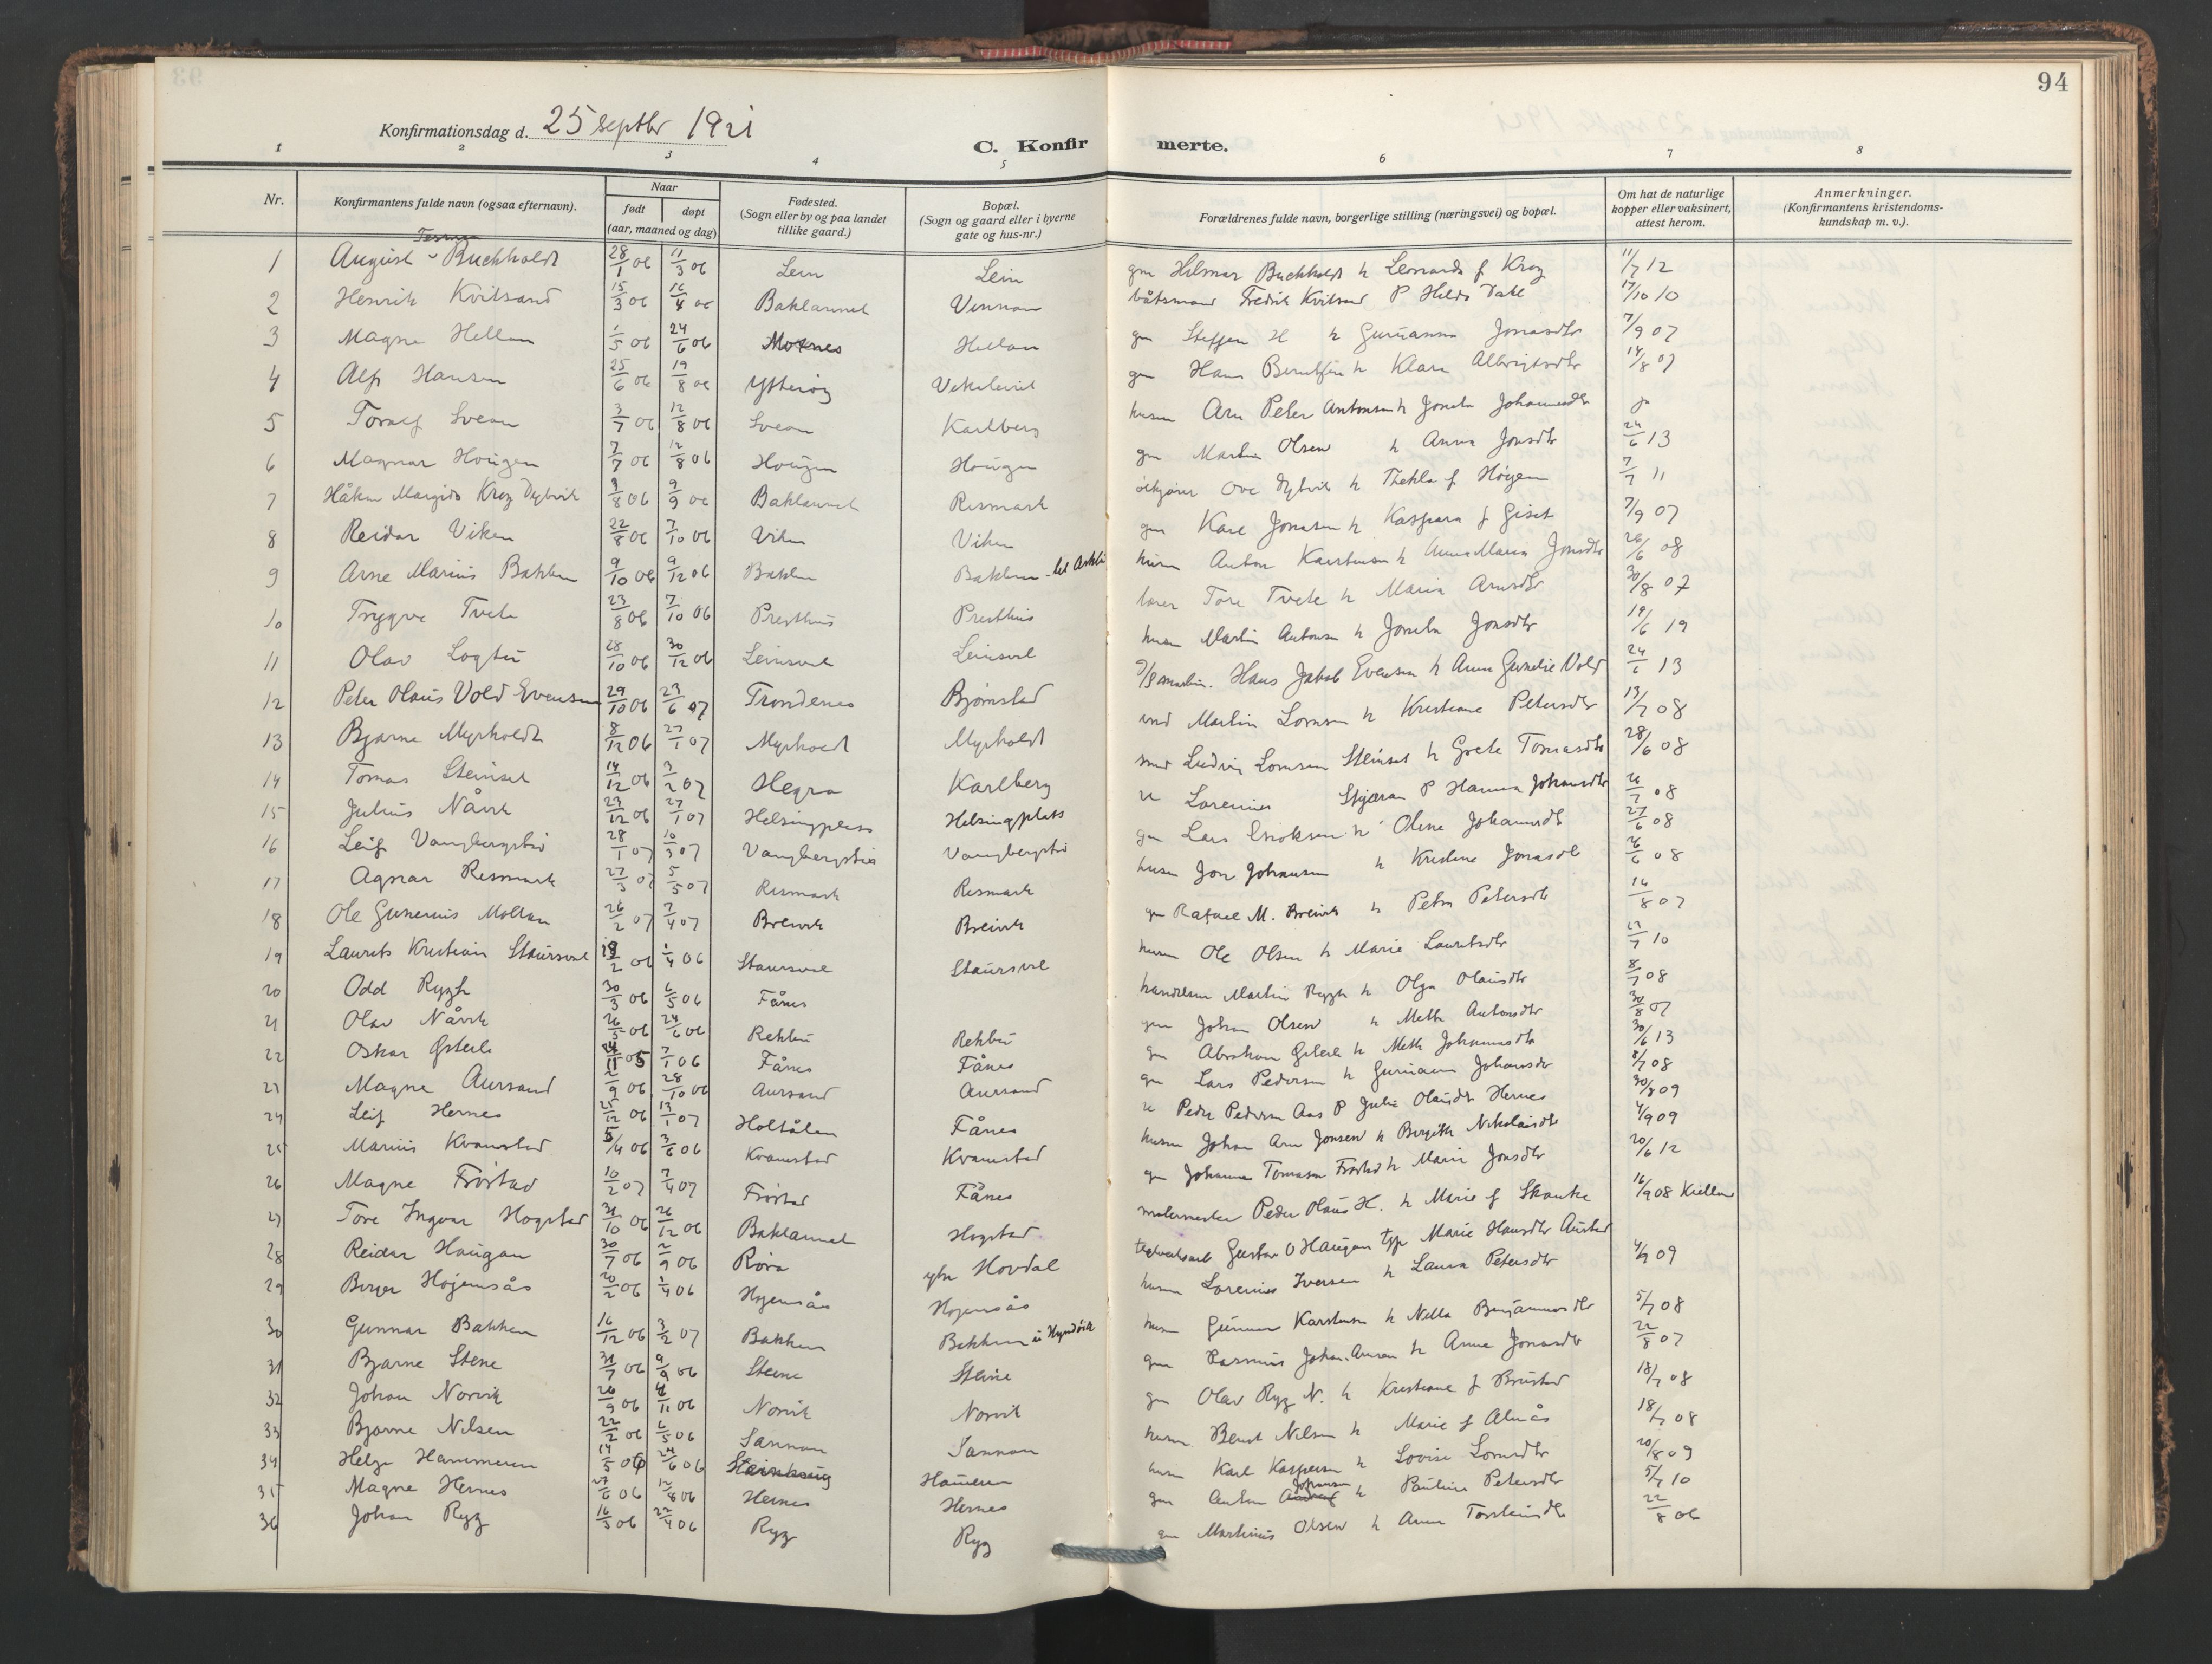 94
Konfirmationsdag d. 25 septbr 1921
C. Konfirmerte.
1 2 3 4 5 6 7 8
Nr.
Konfirmantens fulde navn (ogsaa efternavn).
Naar
født
døpt
(aar, maaned og dag)
Fødested.
(Sogn eller by og paa landet
tillike gaard.)
Bopæl.
(Sogn og gaard eller i byerne
gate og hus-nr.)
Forældrenes fulde navn, borgerlige stilling (næringsvei) og bopæl.
Om hat de naturlige
kopper eller vaksinert,
attest herom.
Anmerkninger.
(Konfirmantens kristendoms-
kundskap m. v.).
1 August Buchholdt 28/1 06 11/3 06 Lein Lein gm Hilmar Buchholdt h Leonarda f Krog 11/7 12
2 Henrik Kvitsand 15/3 06 16/4 06 Baklannet Vinnan båtsmand Fredrik Kvitsand P Hilda Dahl 17/10 10
3 Magne Hellan 1/5 06 24/6 06 Mosnes Hellan gm Steffen H h Guruanna Jonasdtr 7/9 07
4 Alf Hansen 25/6 06 19/8 06 Ytterøy gm Hans Berntsen h Klara Albrigtsdtr 14/8 07
5 Toralf Svean 3/7 06 12/8 06 Svean Karlberg husm Arn Peter Antonsen h Jonetta Johannesdtr ja
6 Magnar Hougen 7/7 06 12/8 06 Hougen Hougen gm Martin Olsen h Anna Jonsdtr 24/6 13
7 Håkon Margido Krog Dybvik 9/8 06 9/9 06 Baklannet Rismark Ove Dybvik h Thekla f Høgem 7/7 11
8 Reidar Viken 22/8 06 7/10 06 Viken Viken gm Karl Jonasen h Kaspara f Giset 7/9 07
9 Arne Marius Bakken 9/10 06 9/12 06 Bakken Bakken husm Anton Karstensen h Anna Maria Jonsdtr 26/6 08
10 Trygve Tvete 23/8 06 7/10 06 Presthus Presthus lærer Tore Tvete h Maria Arnsdtr 30/8 07
11 Olav Logtu 28/10 06 30/12 06 Leinsvel Leinsvel husm Martin Antonsen h Jonetta Jonsdtr 19/6 19
12 Peter Olaus Vold Evensen 29/10 06 23/6 07 Trondenes Bjørnstad Hans Jakob Evensen h Anna Gunelie Vold 24/6 13
13 Bjarne Myrholdt 8/12 06 27/1 07 Myrholdt Myrholdt ind Martin Lornsen h Kristiane Petersdtr 13/7 08
14 Tomas Steinset 14/12 06 3/2 07 Hegra Karlberg smed Ludvig Lornsen Steinset h Grete Tomasdtr 28/6 08
15 Julius Nåvik 23/12 06 27/1 07 Helsingplass Helsingplats u Lorenius Stjæran P Hanna Johansdtr 26/7 08
16 Leif Vangbergstu 28/1 07 10/3 07 Vangbergstu Vangbergstu gm Lars Eriksen h Oline Johansdtr 27/6 08
17 Agnar Rismark 27/3 07 5/5 07 Rismark Rismark husm Jon Johansen h Kristine Jonasdtr 26/6 08
18 Ole Gunerius Moltan 26/2 07 7/4 07 Breivik Breivik gm Rafael M. Breivik h Petra Petersdtr 16/8 07
19 Laurits Kristian Staursvel 18/2 06 1/4 06 Staursvel Staursvel husm Ole Olsen h Marie Lauritsdtr 27/7 10
20 Odd Rygh 30/3 06 6/5 06 Fånes handelsm Martin Rygh h Olga Olausdtr 8/7 08
21 Olav Nåvik 26/5 06 24/6 06 Rekbu Rekbu gm Johan Olsen h Meth Antonsdtr 30/8 07
22 Oskar Østerli 24/11 05 7/1 06 Fånes Fånes gm Abraham Østerli h Meth Johannesdtr 30/6 13
23 Magne Aursand 2/9 06 28/10 06 Aursand Aursand gm Lars Pedersen h Guruanna Johansdtr 8/7 08
24 Leif Hernes 25/12 06 13/1 07 Holtålen Fånes u Peder Pedersen Aas P Julie Olausdtr Hernes 30/8 09
25 Marius Kvamstad 5/4 06 3/6 06 Kvamstad Kvamstad husm Johan Arn Jonsen h Birgith Nikolaisdtr 4/9 09
26 Magne Frøstad 10/2 07 7/4 07 Frøstad Fånes gm Johannes Tomasen Frøstad h Marie Jonsdtr 20/6 12
27 Tore Ingvar Hogstad 31/10 06 26/12 06 Baklannet Hogstad malermester Peder Olaus H. h Marie f Skanke 16/9 08
28 Reidar Haugan 30/7 06 2/9 06 Røra ytre Hovdal Gustav O Haugan Marie Hansdtr Aurstad
29 Birger Hojemsås 20/2 06 1/4 06 Hojemsås Hojemsås husm Lorenius Iversen h Laura Petersdtr 4/9 09
30 Gunnar Bakken 16/12 06 3/2 07 Bakken Bakken husm Gunnar Karstensen h Nella Benjaminsdtr 5/7 08
31 Bjarne Stene 31/7 06 9/9 06 Steine Steine gm Rasmus Johan. Arnsen h Anna Jonasdtr 22/8 07
32 Johan Norvik 26/9 06 4/11 06 Norvik Norvik gm Olav Ryg N. h Kristiane f Brustad 18/7 08
33 Bjarne Nilsen 22/2 06 6/5 06 Sannan Sannan husm Bernt Nilsen h Marie f Almås 18/7 08
34 Helge Hammeren 14/5 06 24/6 06 Hameren husm Karl Kaspersen h Lovise Lornsdtr 20/8 09
35 Magne Hernes 27/6 06 12/8 06 Hernes Hernes gm Anton Johansen h Pauline Petersdtr 5/7 10
36 Johan Ryg 16/3 06 22/4 06 Ryg Ryg gm Martinus Olsen h Anna Torsteinsdtr 22/8 06